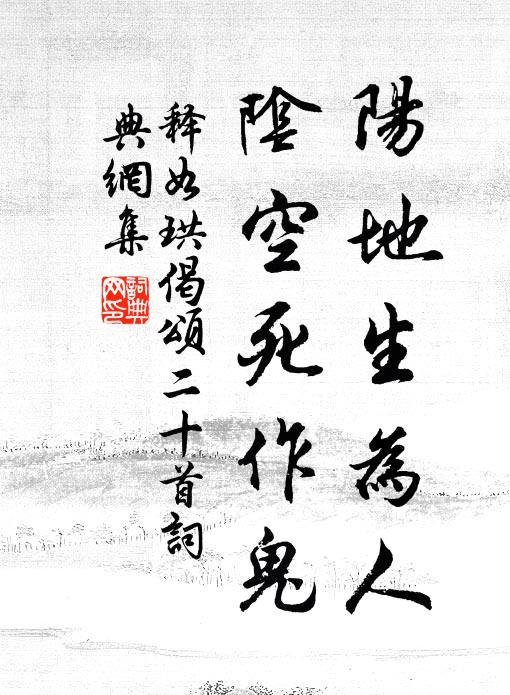 陽地生為人
陰空死作鬼
释如珙偈頌二十首詞
典網集
詞典
网印